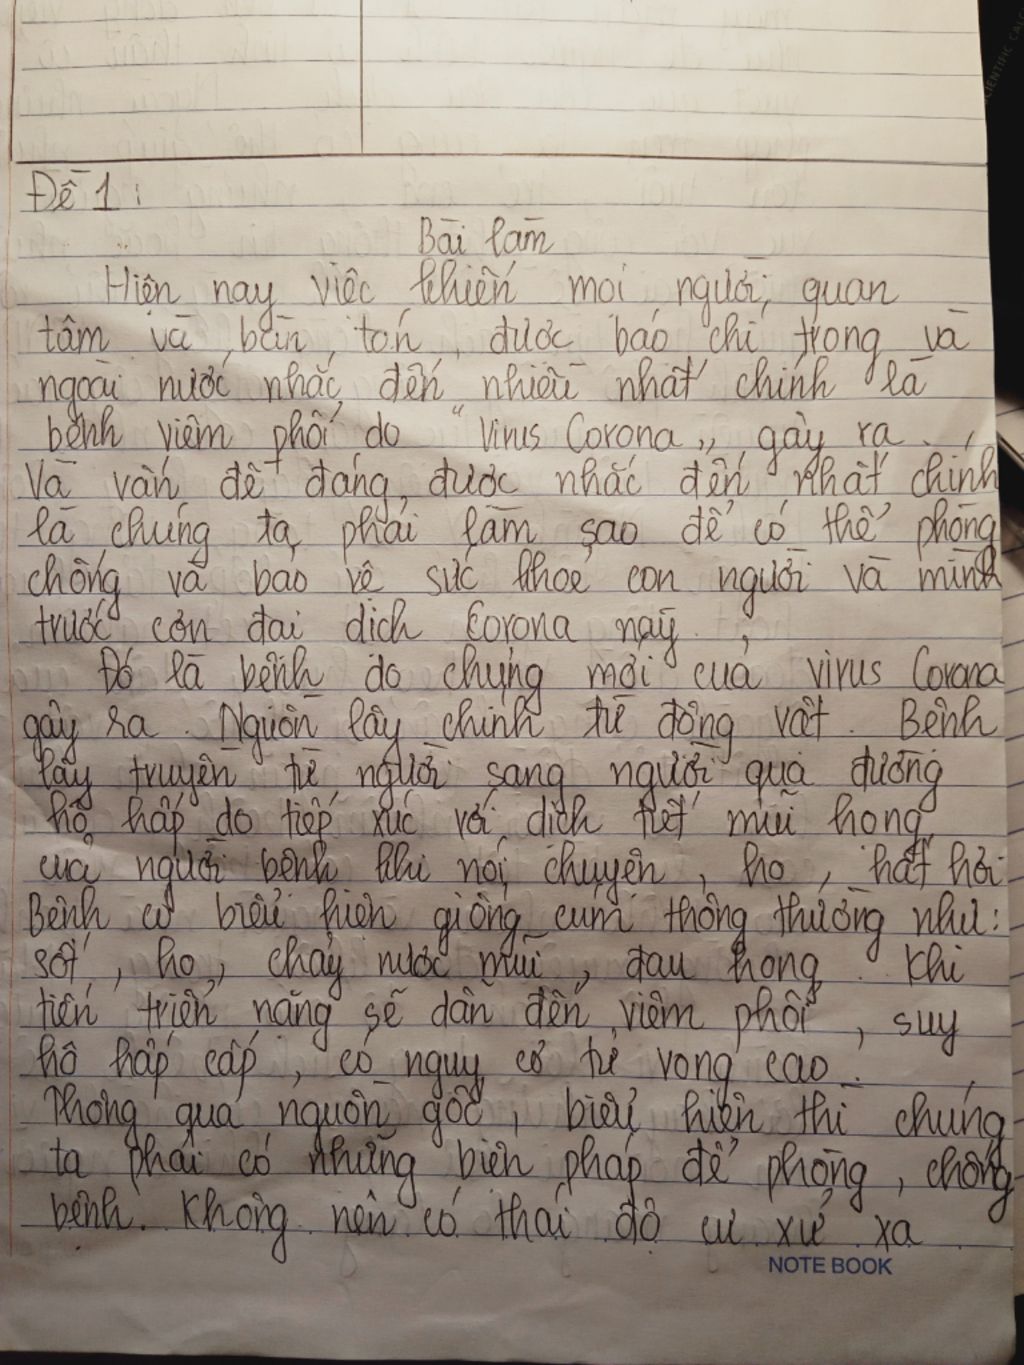 Đề 1:
Bài làm
Hiện nay việc khiến mọi người quan
tâm và bàn tán, được báo chí trong và
ngoài nước nhắc đến nhiều nhất chính là
bệnh viêm phổi do "Virus Corona" gây ra.
Và vấn đề đáng được nhắc đến nhất chính
là chúng ta phải làm sao để có thể phòng
chống và bảo vệ sức khoẻ con người và mình
trước cơn đại dịch Corona này.
Đó là bệnh do chủng mới của virus Corona
gây ra. Nguồn lây chính từ động vật. Bệnh
lây truyền từ người sang người qua đường
hô hấp do tiếp xúc với dịch tiết mũi họng
của người bệnh khi nói chuyện, ho, hắt hơi.
Bệnh có biểu hiện giống cúm thông thường như:
sốt, ho, chảy nước mũi, đau họng. Khi
tiến triển nặng sẽ dẫn đến viêm phổi, suy
hô hấp cấp, có nguy cơ tử vong cao.
Thông qua nguồn gốc, biểu hiện thì chúng
ta phải có những biện pháp để phòng, chống
bệnh. Không nên có thái độ cư xử xa
NOTE BOOK